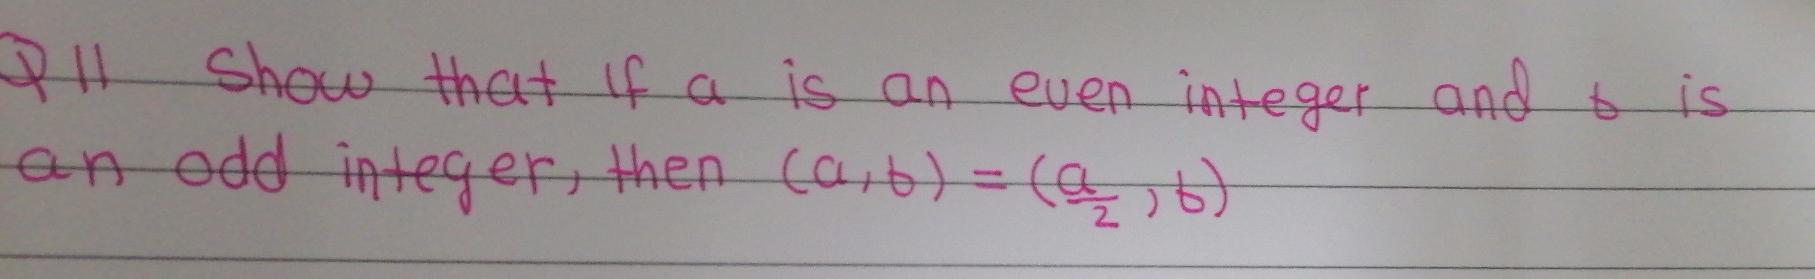 Q11 Show that if a is an even integer and b is
an odd integer, then (a,b) = (a/2, b)